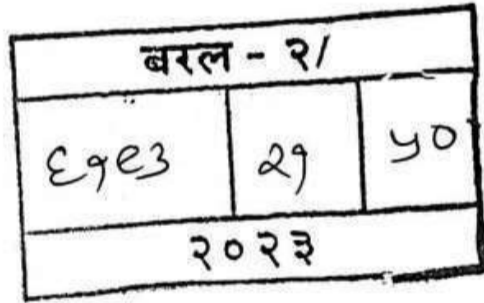 बरल - २/
६१९३ २१ ५०
२०२३